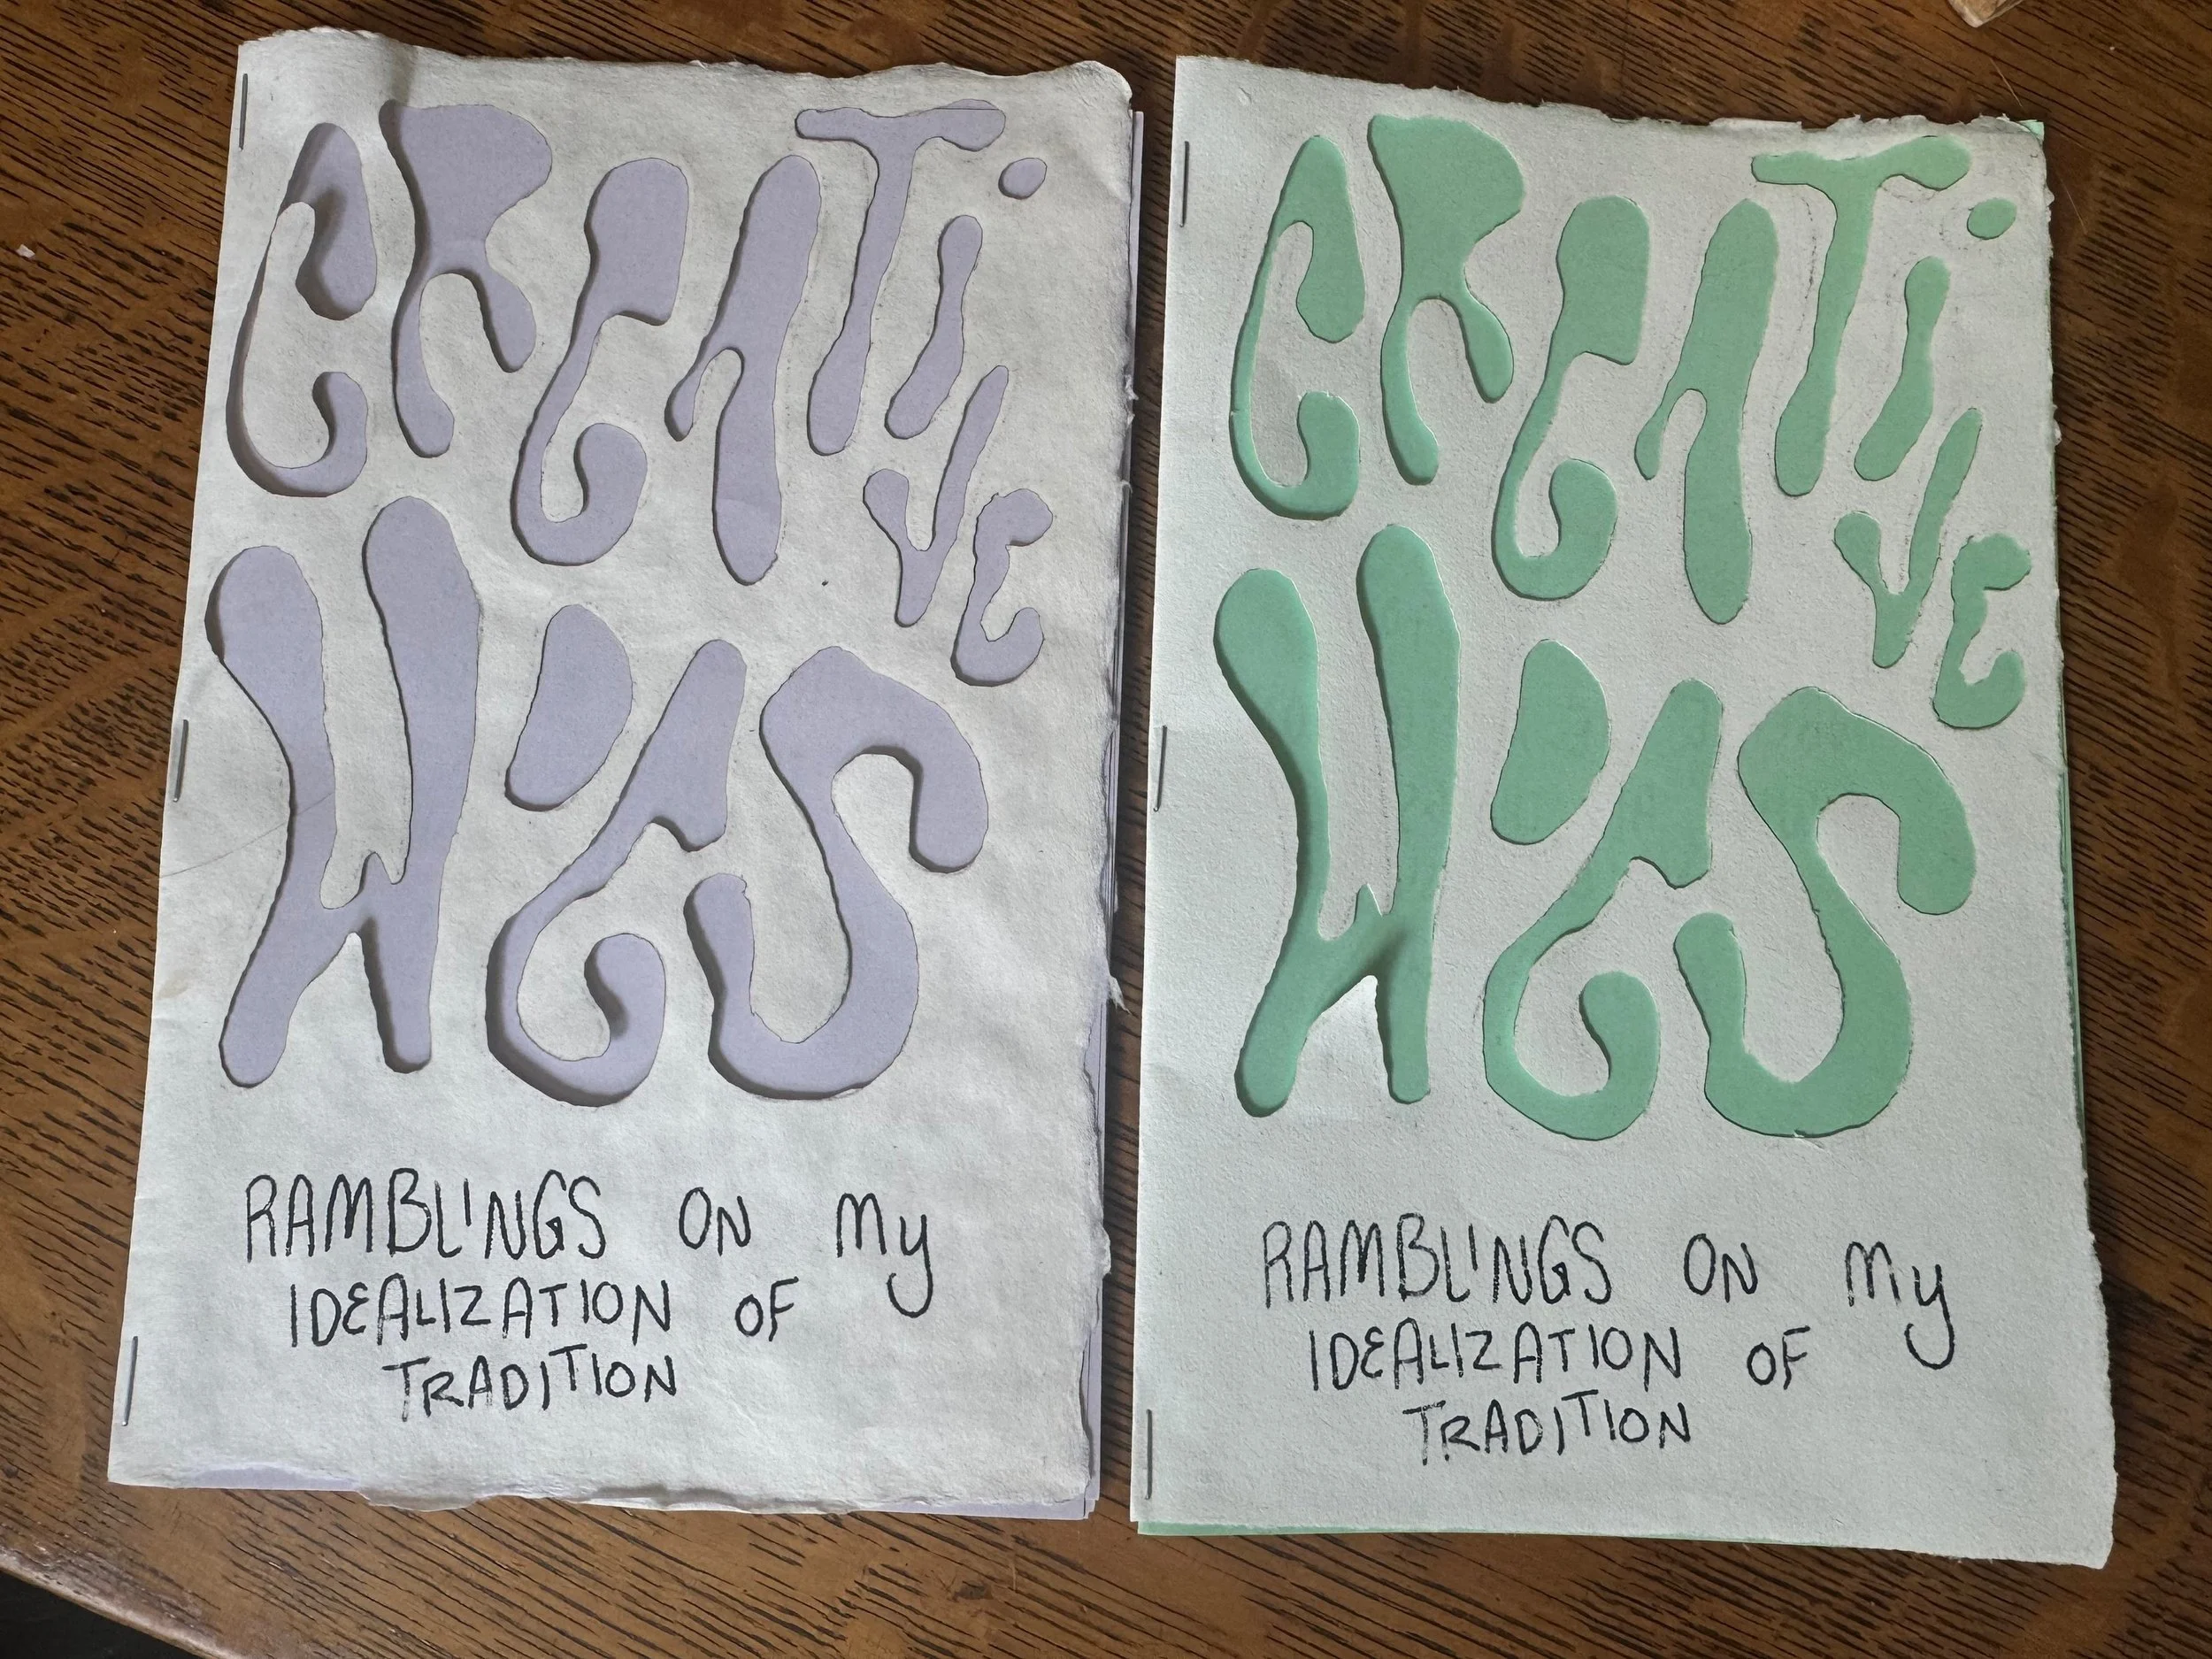 CREATIVE
WOES
RAMBLINGS ON My
IDEALIZATION OF
TRADITION
CREATIVE
WOES
RAMBLINGS ON My
IDEALIZATION OF
TRADITION